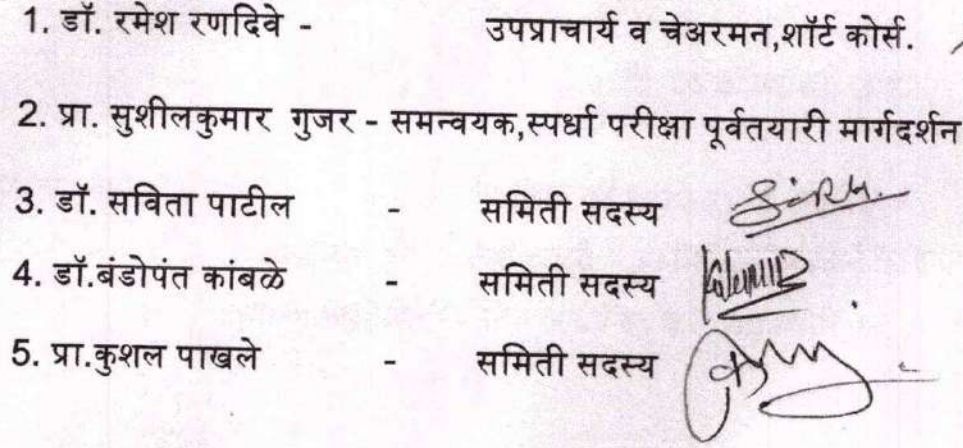 1. डॉ. रमेश रणदिवे - उपप्राचार्य व चेअरमन,शॉर्ट कोर्स.
2. प्रा. सुशीलकुमार गुजर - समन्वयक,स्पर्धा परीक्षा पूर्वतयारी मार्गदर्शन
3. डॉ. सविता पाटील - समिती सदस्य
4. डॉ.बंडोपंत कांबळे - समिती सदस्य
5. प्रा.कुशल पाखले - समिती सदस्य